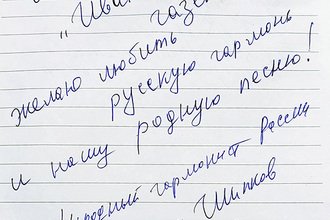 "Ива газе
желаю любить
русскую гармонь
и нашу родную песню!
родный гармонист России
Шипков